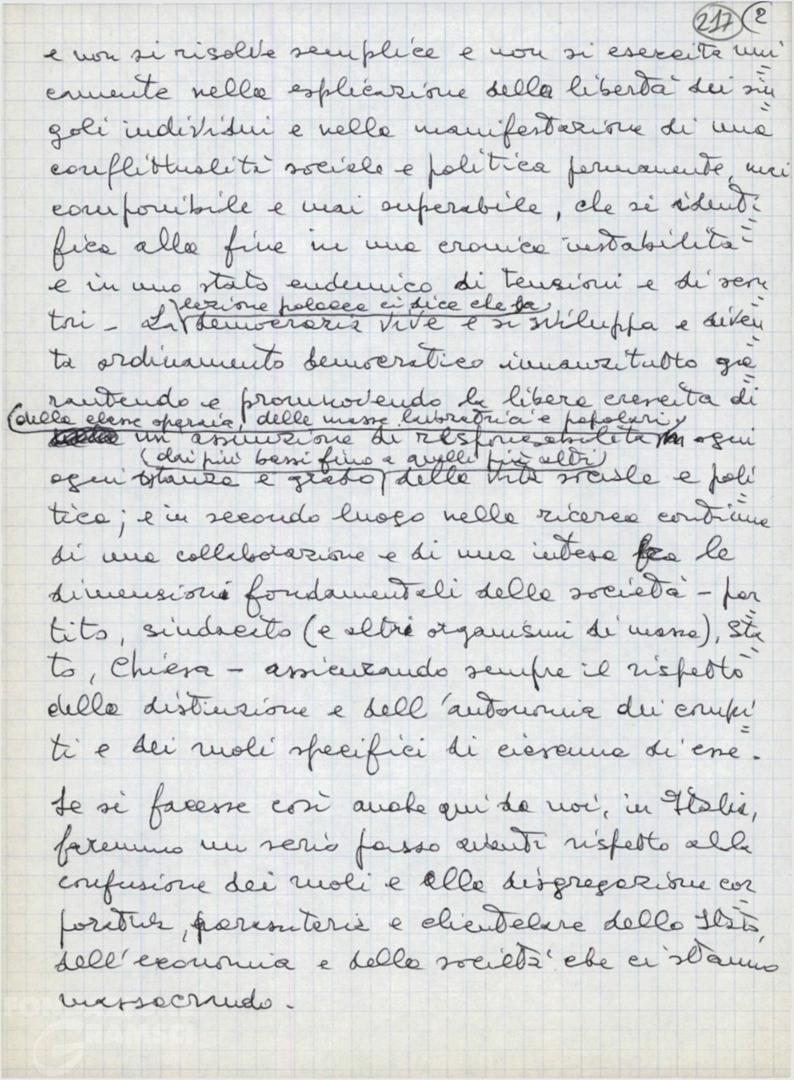 217 2
e non si risolve semplice e non si esercita uni
camente nella esplicazione della libertà dei sin
goli individui e nella manifestazione di una
conflittualità sociale e politica permanente, mai
componibile e mai superabile, che si identi
fica alla fine in una cronica instabilità
e in uno stato endemico di tensioni e di scon
lezione polacca ci dice che la
tri - La democrazia vive e si sviluppa e diven
ta ordinamento democratico innanzitutto ga
rantendo e promuovendo la libera crescita di
della classe operaia, delle masse lavoratrici e popolari
un'assunzione di responsabilità in ogni
(dai più bassi fino a quelli più alti)
ogni istanza e grado della vita sociale e poli
tica; e in secondo luogo nella ricerca continua
di una collaborazione e di una intesa fra le
dimensioni fondamentali della società - par
tito, sindacato (e altri organismi di massa), Sta
to, Chiesa - assicurando sempre il rispetto
della distinzione e dell'autonomia dei compi
ti e dei ruoli specifici di ciascuna di esse.
Se si facesse così anche qui da noi, in Italia,
faremmo un serio passo avanti rispetto alla
confusione dei ruoli e alla disgregazione cor
porativa, parassitaria e clientelare dello Stato,
dell'economia e della società che ci stanno
massacrando.
FONDAZIONE
GRAMSCI